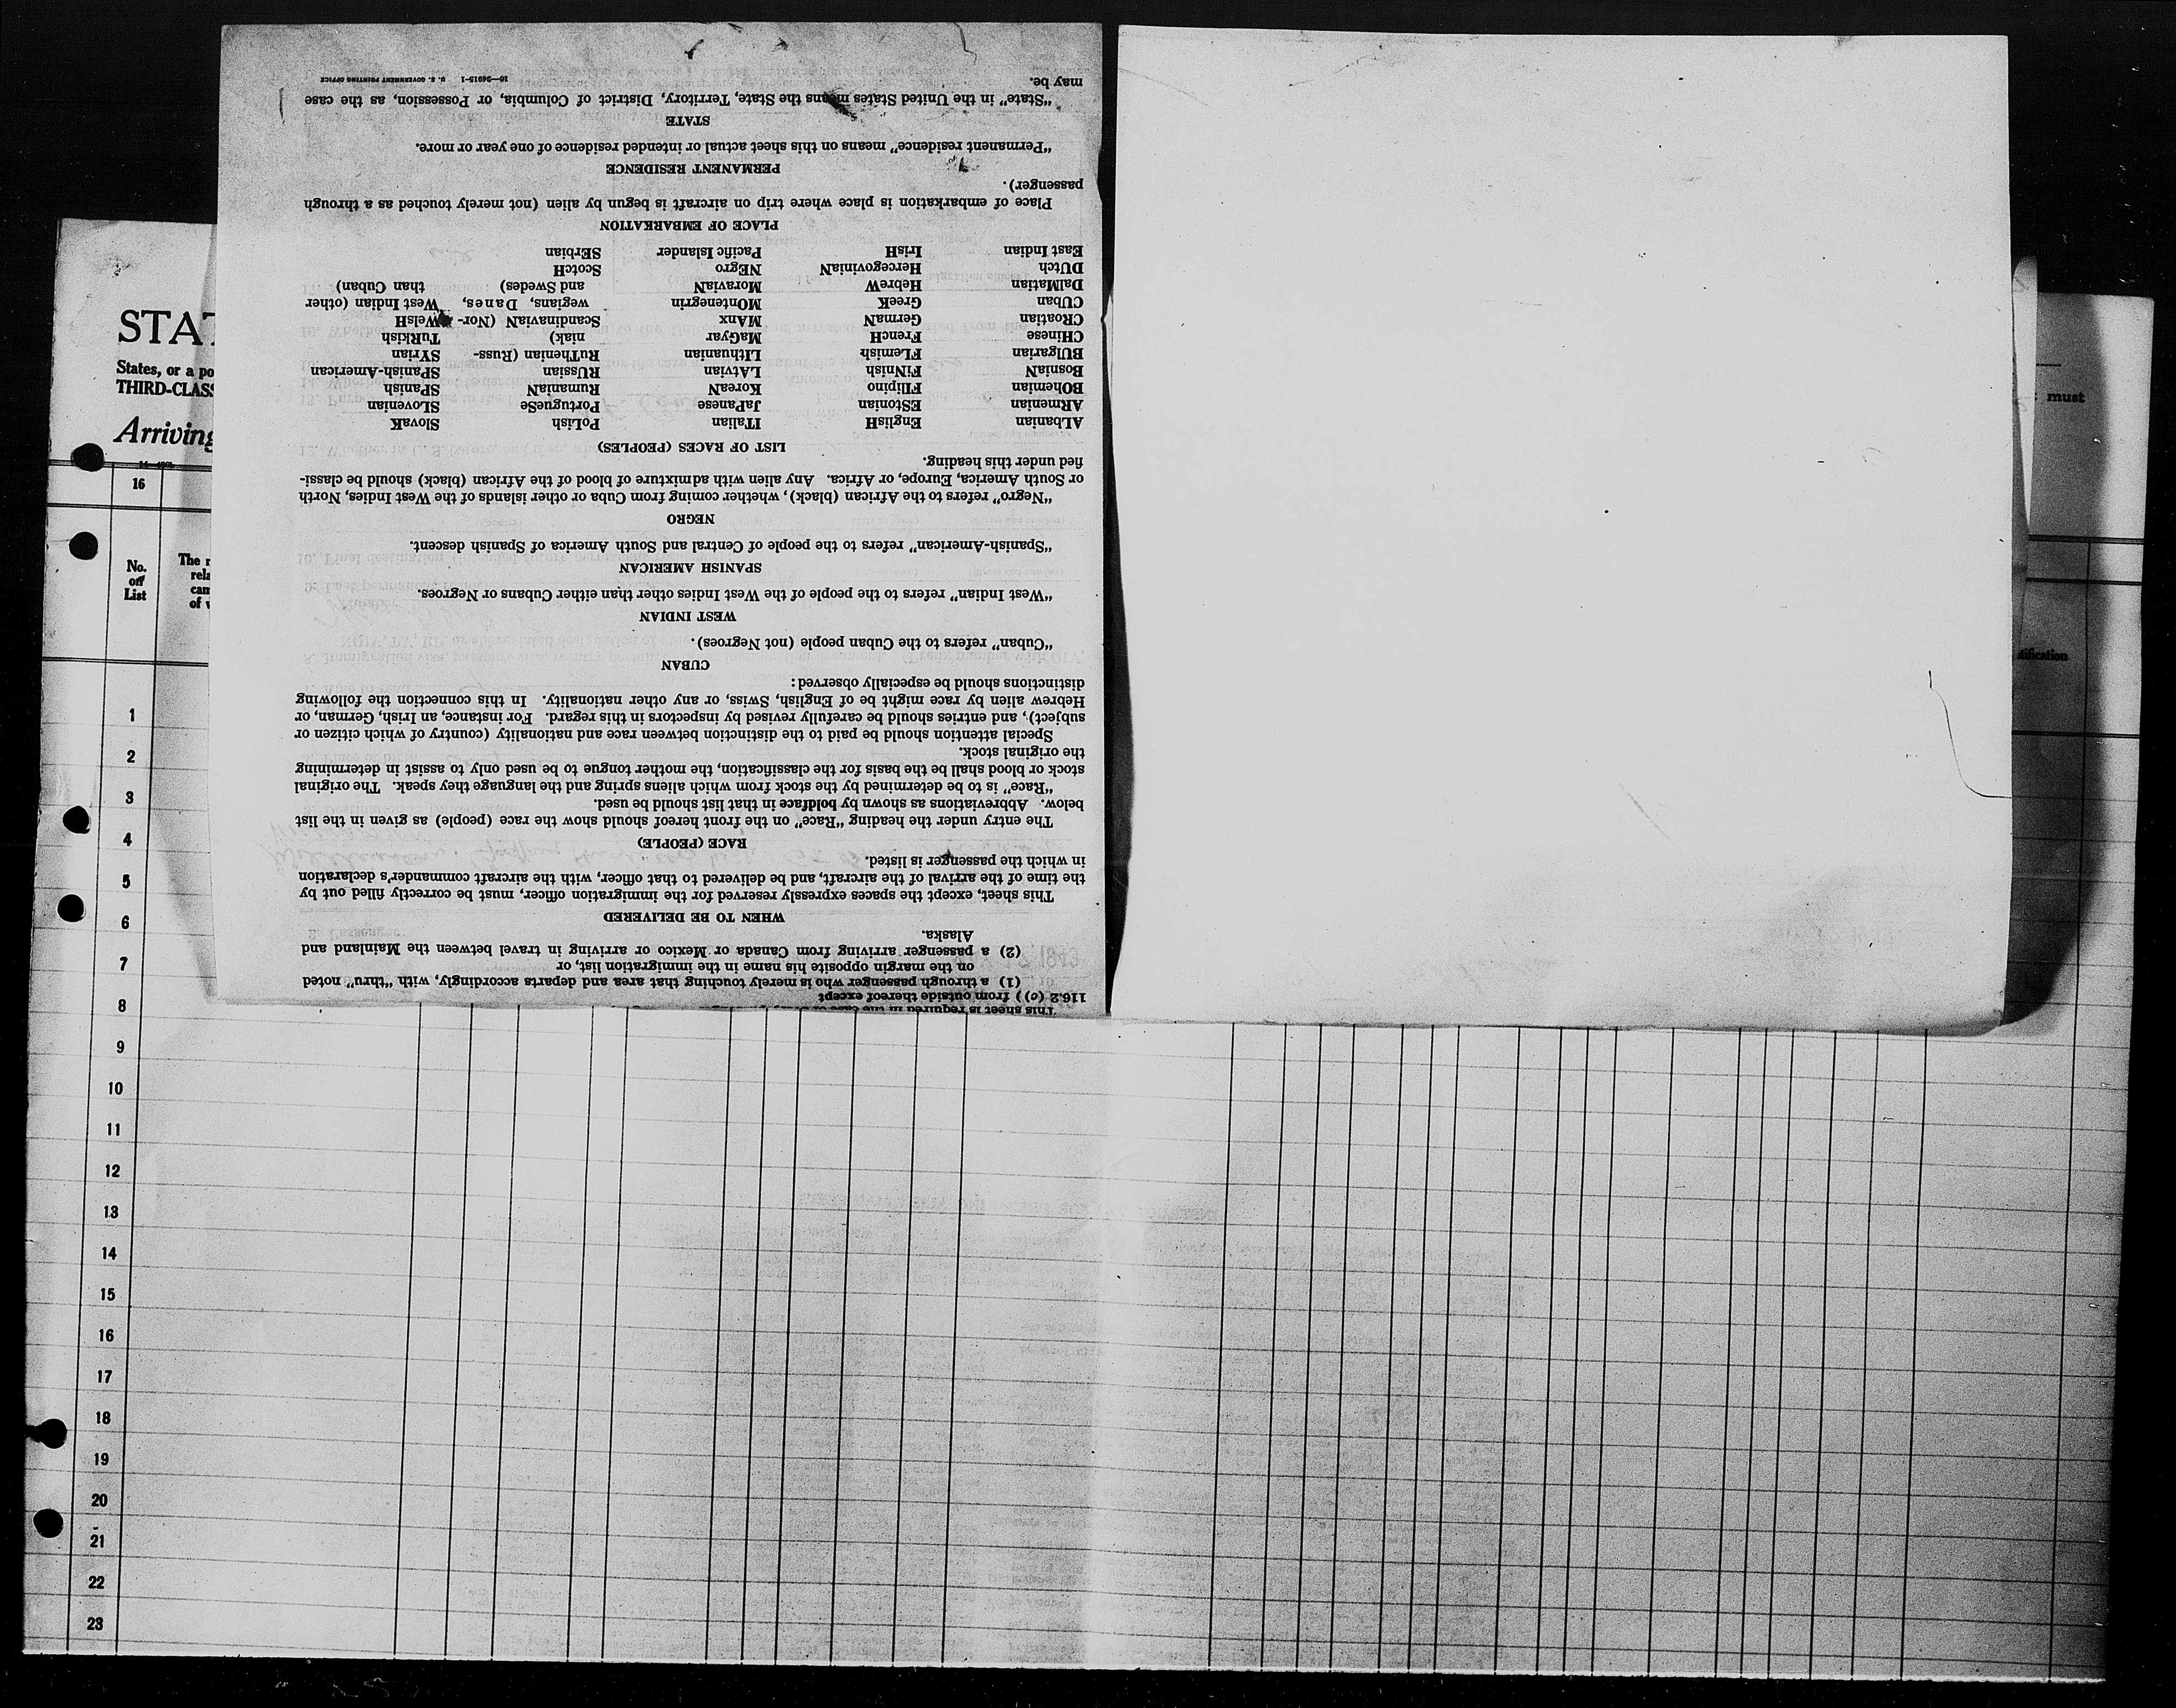 This sheet is required in the case of
116.2 (c)) from outside thereof except
(1) a through passenger who is merely touching that area and departs accordingly, with "thru" noted
on the margin opposite his name in the immigration list, or
(2) a passenger arriving from Canada or Mexico or arriving in travel between the Mainland and
Alaska.
WHEN TO BE DELIVERED
This sheet, except the spaces expressly reserved for the immigration officer, must be correctly filled out by
the time of the arrival of the aircraft, and be delivered to that officer, with the aircraft commander's declaration
in which the passenger is listed.
RACE (PEOPLE)
The entry under the heading "Race" on the front hereof should show the race (people) as given in the list
below. Abbreviations as shown by boldface in that list should be used.
"Race" is to be determined by the stock from which aliens spring and the language they speak. The original
stock or blood shall be the basis for the classification, the mother tongue to be used only to assist in determining
the original stock.
Special attention should be paid to the distinction between race and nationality (country of which citizen or
subject), and entries should be carefully revised by inspectors in this regard. For instance, an Irish, German, or
Hebrew alien by race might be of English, Swiss, or any other nationality. In this connection the following
distinctions should be especially observed:
CUBAN
"Cuban" refers to the Cuban people (not Negroes).
WEST INDIAN
"West Indian" refers to the people of the West Indies other than either Cubans or Negroes.
SPANISH AMERICAN
"Spanish-American" refers to the people of Central and South America of Spanish descent.
NEGRO
"Negro" refers to the African (black), whether coming from Cuba or other islands of the West Indies, North
or South America, Europe, or Africa. Any alien with admixture of blood of the African (black) should be classi-
fied under this heading.
LIST OF RACES (PEOPLES)
ALbanian EngliSH ITalian PoLish SlovaK
ARmenian EStonian JaPanese PortugueSe SLovenian
BOhemian FIlipino KoreaN RumaniaN SPanish
BosniaN FiNnish LAtvian RUssian SPanish-American
BUlgarian FLemish LIthuanian RuThenian (Russ- SYrian
CHinese FrencH MaGyar niak) TuRkish
CRoatian GermaN MAnx ScandinaviaN (Nor- WelsH
CUban GreeK MOntenegrin wegians, Danes, West Indian (other
DalMatian HebreW MoraviaN and Swedes) than Cuban)
DUtcH HercegoviniaN NEgro ScotcH
East Indian IrisH Pacific Islander SErbian
PLACE OF EMBARKATION
Place of embarkation is place where trip on aircraft is begun by alien (not merely touched as a through
passenger).
PERMANENT RESIDENCE
"Permanent residence" means on this sheet actual or intended residence of one year or more.
STATE
"State" in the United States means the State, Territory, District of Columbia, or Possession, as the case
may be.
16—24915-1 U. S. GOVERNMENT PRINTING OFFICE
STAT
States, or a po
THIRD-CLASS
Arriving
must
16
No.
on
List
The
rela
can
of
1
2
3
4
5
6
7
8
9
10
11
12
13
14
15
16
17
18
19
20
21
22
23